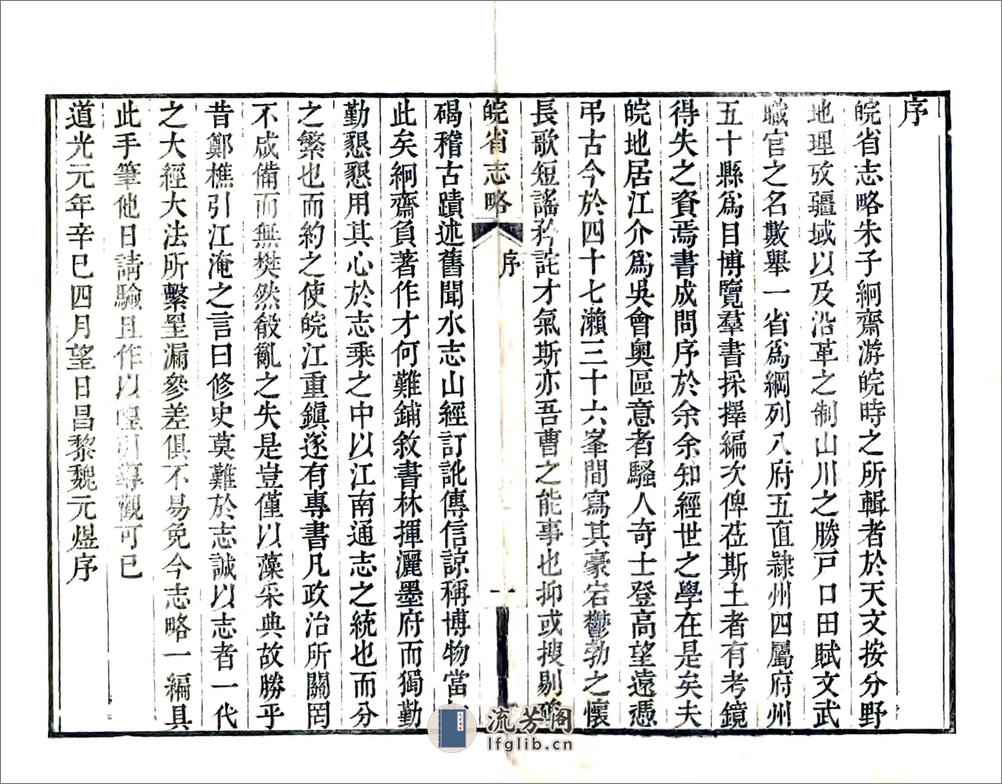 序
皖省志略朱子絅齋游皖時之所輯者於天文按分野
地理攷疆域以及沿革之制山川之勝戸口田賦文武
職官之名數舉一省爲綱列八府五直隸州四屬府州
五十縣爲目博覽羣書採擇編次俾莅斯土者有考鏡
得失之資焉書成問序於余余知經世之學在是矣夫
皖地居江介爲吳會奥區意者騷人奇士登高望遠憑
弔古今於四十七瀨三十六峯間寫其豪宕鬱勃之懷
長歌短謠矜詫才氣斯亦吾曹之能事也抑或搜剔
皖省志略
序
一
碣稽古蹟述舊聞水志山經訂訛傳信諒稱博物當
此矣絅齋負著作才何難鋪敘書林揮灑墨府而獨勤
勤懇懇用其心於志乘之中以江南通志之統也而分
之繁也而約之使皖江重鎭遂有專書凡政治所關罔
不咸備而無樊然殽亂之失是豈僅以藻采典故勝乎
昔鄭樵引江淹之言曰修史莫難於志誠以志者一代
之大經大法所繫罣漏參差俱不易免今志略一編具
此手筆他日請驗且作以㷉引導觀可已
道光元年辛巳四月望日昌黎魏元煜序
流芳閣
lfglib.cn